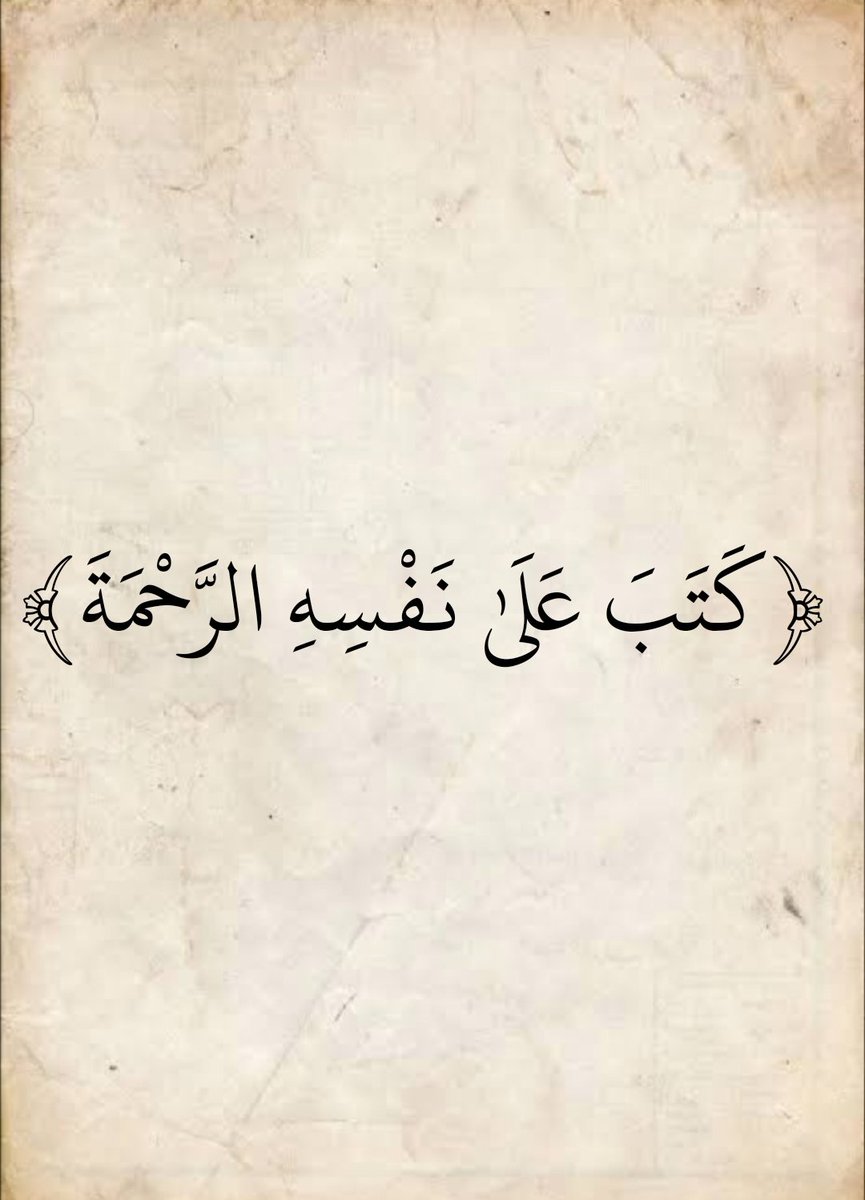 ﴿كَتَبَ عَلَىٰ نَفْسِهِ الرَّحْمَةَ﴾